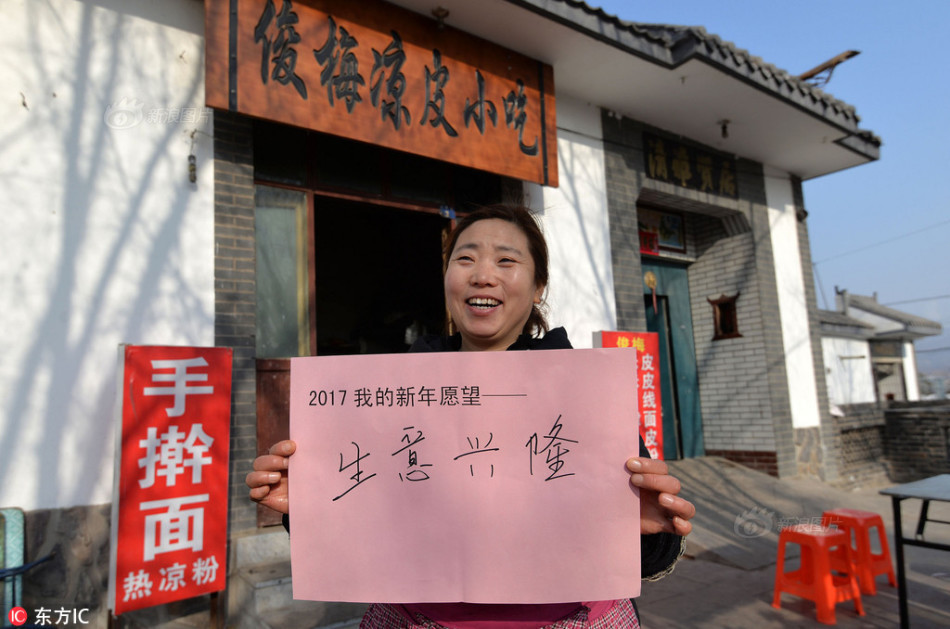 俊梅凉皮小吃
手擀面
热凉粉
俊梅
皮
皮
线
面
皮
2017 我的新年愿望——
生意兴隆
新浪图片
新浪图片
IC 东方IC